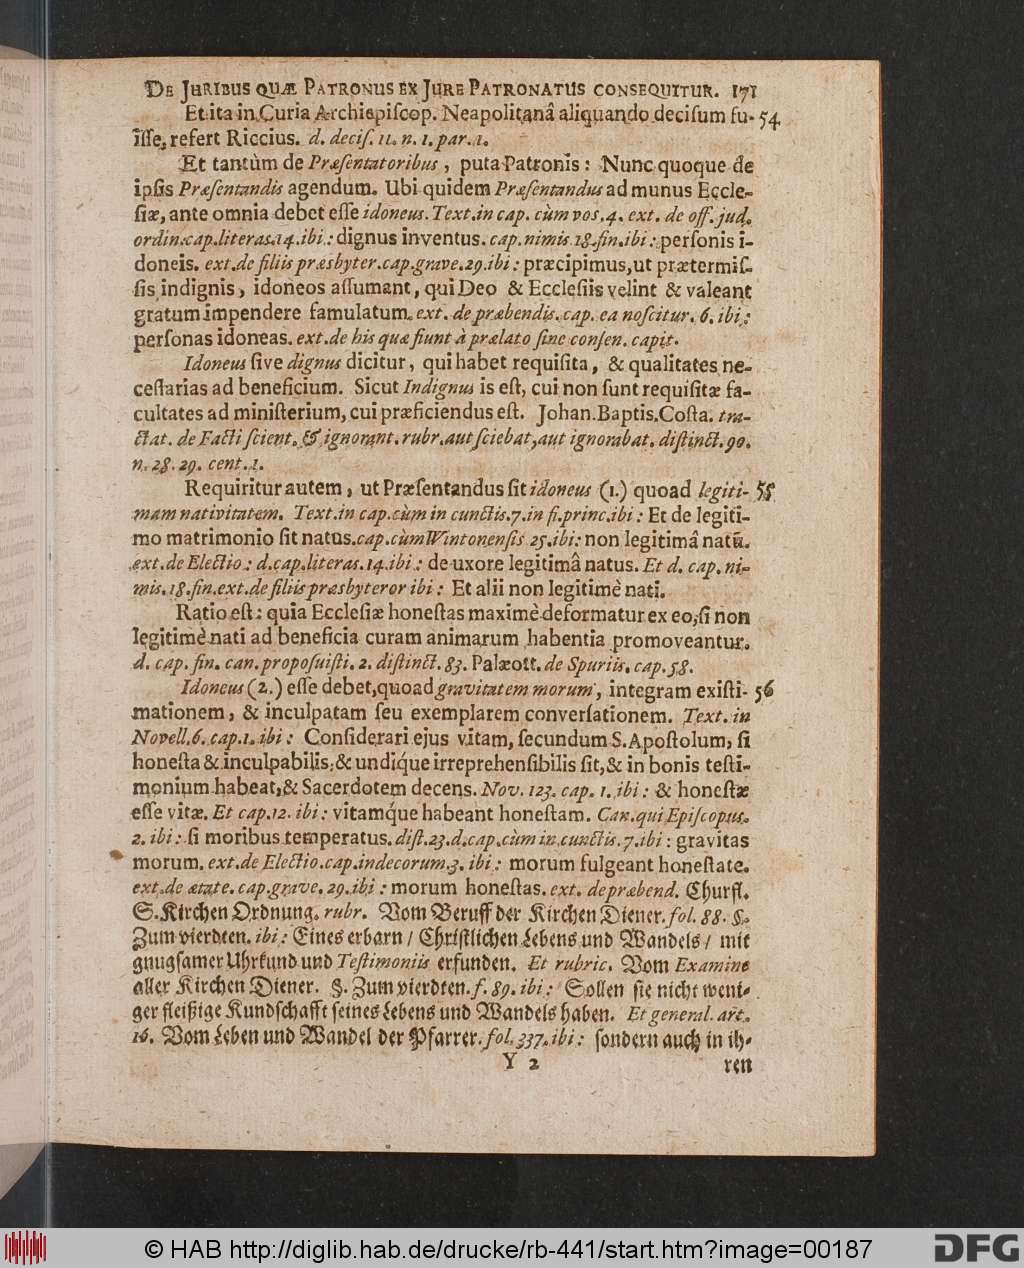 De Juribus quæ Patronus ex Jure Patronatus consequitur. 171
Et ita in Curia Archiepiſcop. Neapolitanâ aliquando deciſum fu- 54
iſſe, refert Riccius. d. deciſ. 11. n. 1. par. 1.
Et tantùm de Præſentatoribus, puta Patronis: Nunc quoque de
ipſis Præſentandis agendum. Ubi quidem Præſentandus ad munus Eccle-
ſiæ, ante omnia debet eſſe idoneus. Text. in cap. cùm vos. 4. ext. de off. jud.
ordin. cap. literas. 14. ibi: dignus inventus. cap. nimis 18. fin. ibi: perſonis i-
doneis. ext. de filiis præsbyter. cap. grave. 29. ibi: præcipimus, ut prætermiſ-
ſis indignis, idoneos aſſumant, qui Deo & Eccleſiis velint & valeant
gratum impendere famulatum. ext. de præbendis. cap. ea noſcitur. 6. ibi:
perſonas idoneas. ext. de his quæ fiunt à prælato ſine conſen. capit.
Idoneus ſive dignus dicitur, qui habet requiſita, & qualitates ne-
ceſſarias ad beneficium. Sicut Indignus is eſt, cui non ſunt requiſitæ fa-
cultates ad miniſterium, cui præficiendus eſt. Johan. Baptis. Coſta. tra-
ctat. de Facti ſcient. & ignorant. rubr. aut ſciebat, aut ignorabat. diſtinct. 90.
n. 28. 29. cent. 1.
Requiritur autem, ut Præſentandus ſit idoneus (1.) quoad legiti- 55
mam nativitatem. Text. in cap. cùm in cunctis. 7. in fi. princ. ibi: Et de legiti-
mo matrimonio ſit natus. cap. cùm Wintonenſis 25. ibi: non legitimâ natũ.
ext. de Electio: d. cap. literas. 14. ibi: de uxore legitimâ natus. Et d. cap. ni-
mis. 18. fin. ext. de filiis præsbyteror ibi: Et alii non legitimè nati.
Ratio eſt: quia Eccleſiæ honeſtas maximè deformatur ex eo, ſi non
legitimè nati ad beneficia curam animarum habentia promoveantur.
d. cap. fin. can. propoſuiſti. 2. diſtinct. 83. Palæott. de Spuriis. cap. 58.
Idoneus (2.) eſſe debet, quoad gravitatem morum, integram exiſti- 56
mationem, & inculpatam ſeu exemplarem converſationem. Text. in
Novell. 6. cap. 1. ibi: Conſiderari ejus vitam, ſecundum S. Apoſtolum, ſi
honeſta & inculpabilis, & undiq́ue irreprehenſibilis ſit, & in bonis teſti-
monium habeat, & Sacerdotem decens. Nov. 123. cap. 1. ibi: & honeſtæ
eſſe vitæ. Et cap. 12. ibi: vitamq́ue habeant honeſtam. Can. qui Epiſcopus.
2. ibi: ſi moribus temperatus. diſt. 23. d. cap. cùm in cunctis. 7. ibi: gravitas
morum. ext. de Electio. cap. indecorum. 3. ibi: morum fulgeant honeſtate.
ext. de ætate. cap. grave. 29. ibi: morum honeſtas. ext. de præbend. Churfl.
S. Kirchen Ordnung. rubr. Vom Beruff der Kirchen Diener. fol. 88. §.
Zum vierdten. ibi: Eines erbarn / Chriſtlichen Lebens und Wandels / mit
gnugſamer Uhrkund und Teſtimoniis erfunden. Et rubric. Vom Examine
aller Kirchen Diener. §. Zum vierdten. f. 89. ibi: Sollen ſie nicht weni-
ger fleißige Kundſchafft ſeines Lebens und Wandels haben. Et general. art.
16. Vom Leben und Wandel der Pfarrer. fol. 337. ibi: ſondern auch in ih-
Y 2 ren
© HAB http://diglib.hab.de/drucke/rb-441/start.htm?image=00187
DFG